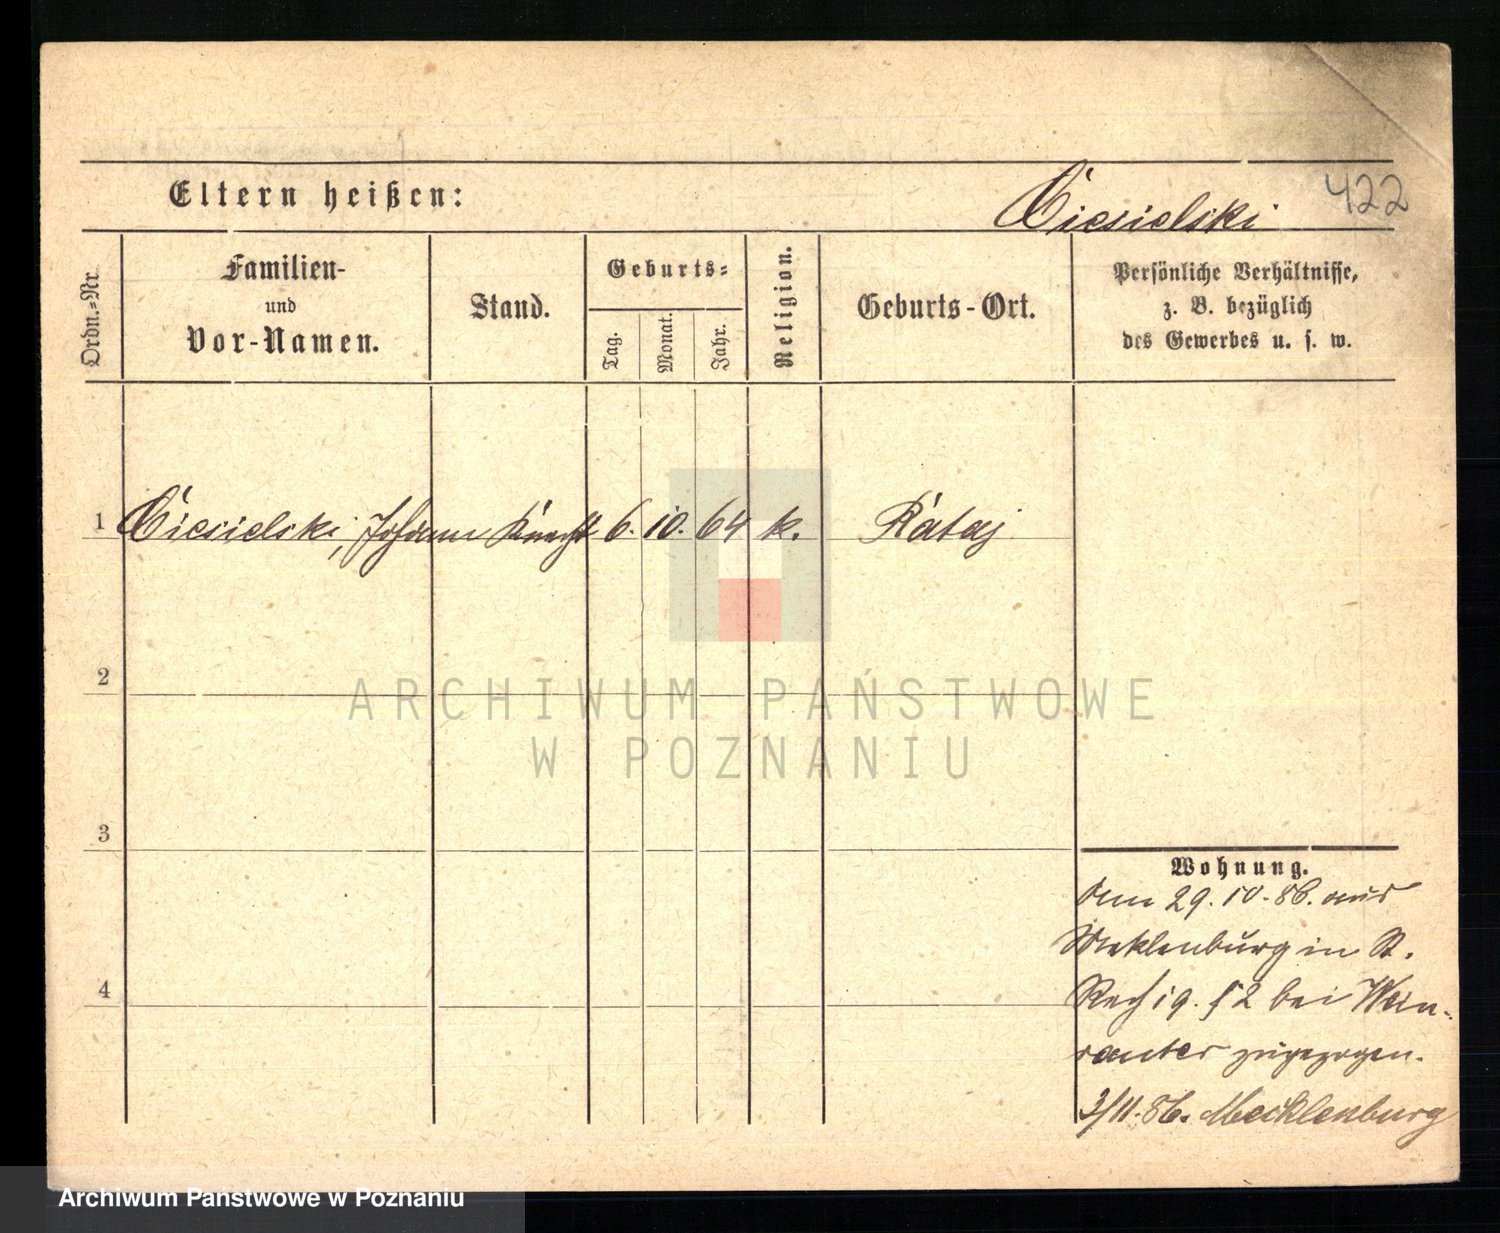 Eltern heißen:
Ciesielski 422
Ordn.-Nr.
Familien-
und
Vor-Namen.
Stand.
Geburts-
Tag.
Monat.
Jahr.
Religion.
Geburts-Ort.
Persönliche Verhältnisse,
z. B. bezüglich
des Gewerbes u. s. w.
1 Ciesielski, Johann Knecht 6. 10. 64 k. Rataj
2
3
4
Wohnung.
29. 10. 86. aus
Meklenburg in St.
19. 52 bei Wein-
zugezogen.
3/11. 86. Mecklenburg
ARCHIWUM PAŃSTWOWE
W POZNANIU
Archiwum Państwowe w Poznaniu